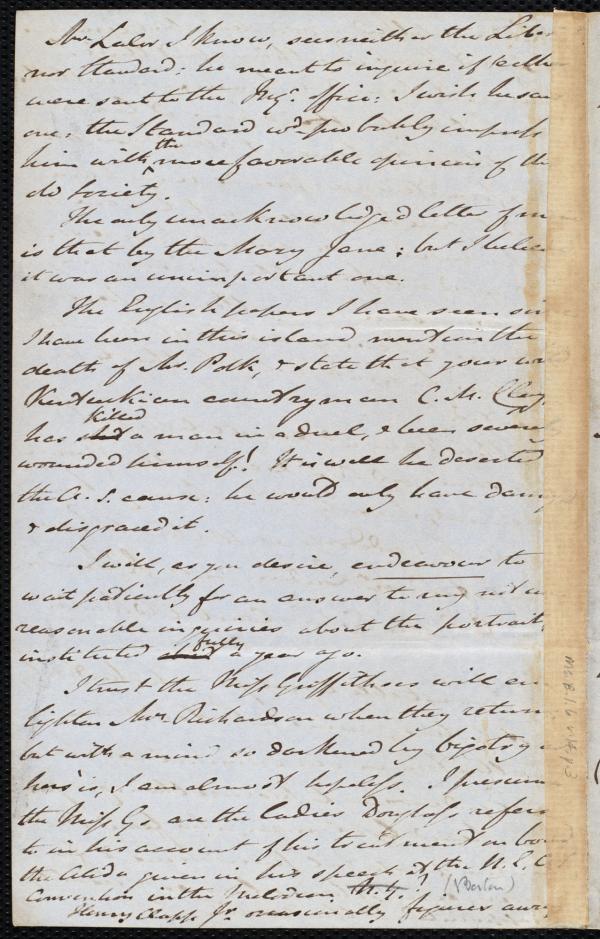 Mr Lalor I know, sees neither the Liber
nor Standard: he meant to inquire if either
were sent to the Regr. office: I wish he saw
one: the Standard wd. probably impress
him with the more favorable opinion of the
do Society.
The only unacknowledged letter from
is that by the Mary Jane; but I believe
it was an unimportant one.
The English papers I have seen since
I have been in this island mention the
death of Mr. Polk, & state that your
Kentuckian countryman C. M. Clay,
has shot killed a man in a duel, & been severely
wounded himself! It is well he deserted
the A. S. cause: he would only have damag
& disgraced it.
I will, as you desire, endeavour to
wait patiently for an answer to my not un
reasonable inquiries about the portrait,
instituted fully a year ago.
I trust the Miss Griffithses will en
lighten Mrs. Richardson when they return
but with a mind so darkened by bigotry as
hers is, I am almost hopeless. I presume
the Miss Gs are the ladies Douglass refers
to in his account of his treatment on board
the Alida given in his speech at the N. E. A. S.
Convention in the Melodeon ! (Boston)
Henry Clapp Jr. occasionally figures away
MS.B.1.6 v.14, p.3